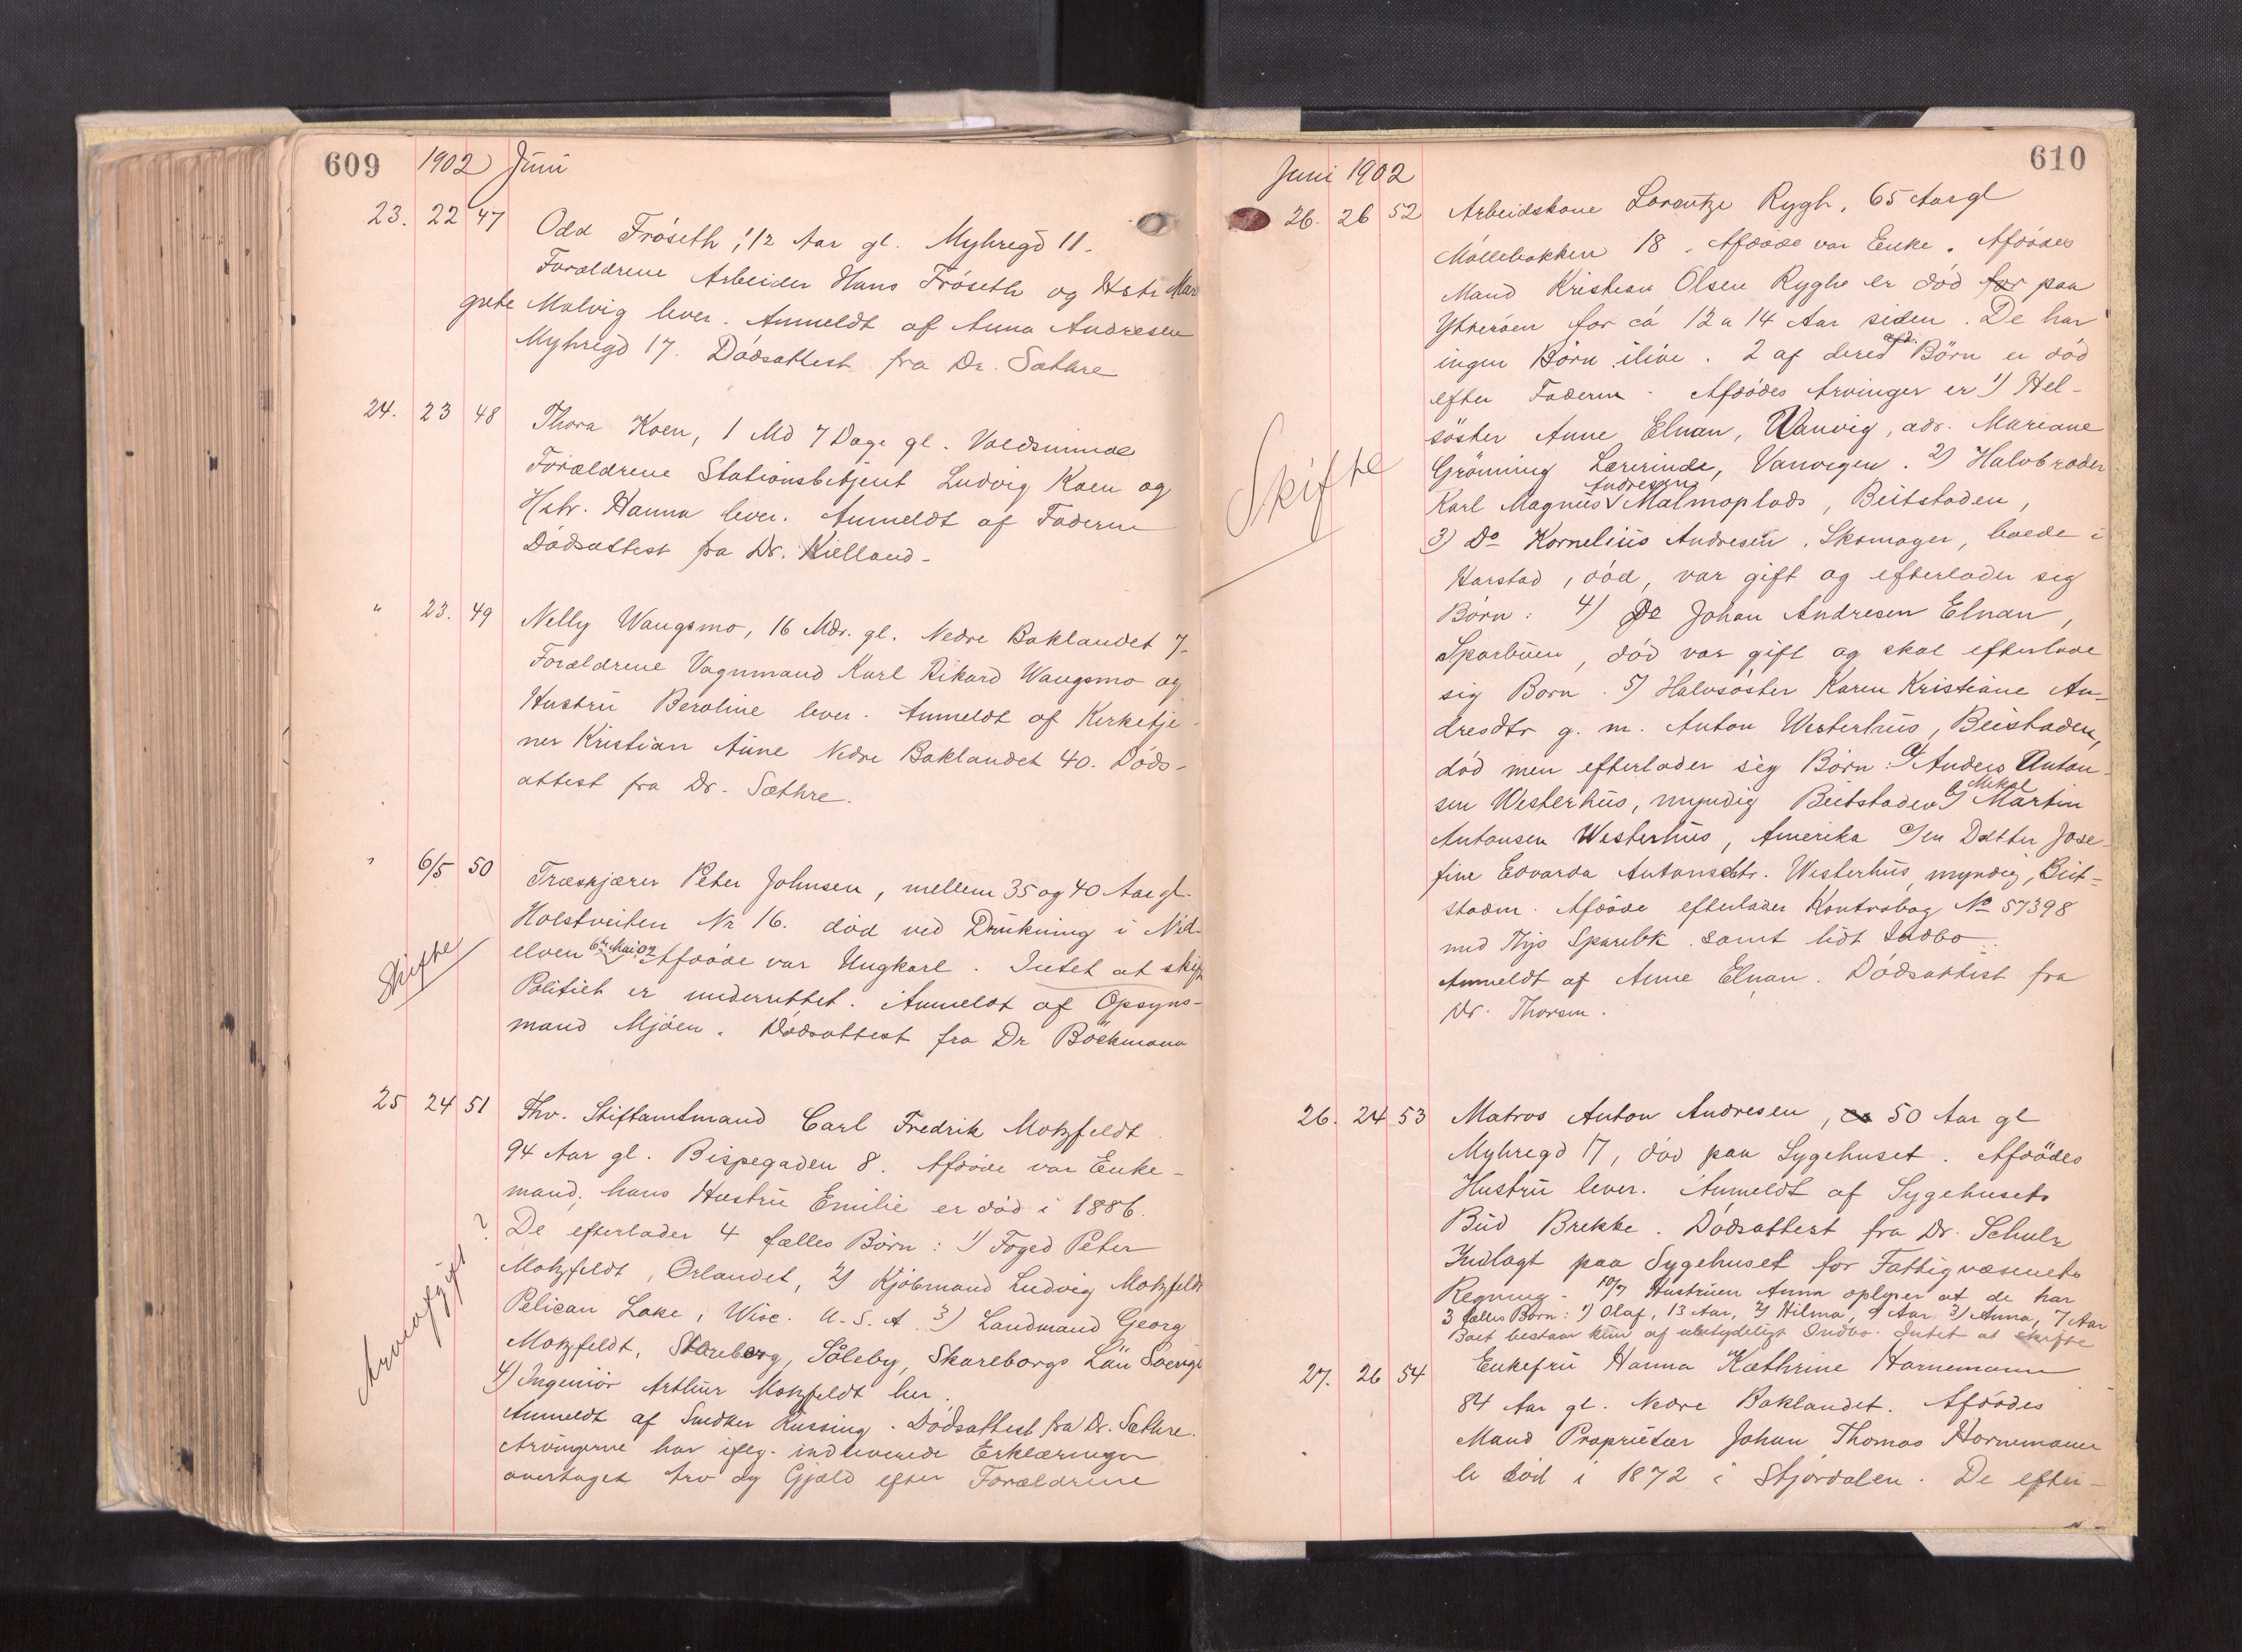 609 1902 Juni
23. 22 47 Odd Fröseth, 1/2 Aar gl. Myhregd 11.
Forældrene Arbeider Hans Fröseth og Hstr Mar
grete Malvig lever. Anmeldt af Anna Andresen
Myhregd 17. Dödsattest fra Dr. Sæthre
24. 23 48 Thora Koen, 1 Md 7 Dage gl. Voldsminde
Forældrene Stationsbetjent Ludvig Koen og
Hstr. Hanna lever. Anmeldt af Faderen
Dödsattest fra Dr. Kielland.
" 23. 49 Nelly Waugsmo, 16 Mdr. gl. Nedre Baklandet 7.
Forældrene Vognmand Karl Rikard Waugsmo og
Hustru Beroline lever. Anmeldt af Kirketje-
ner Kristian Aune Nedre Baklandet 40. Döds-
attest fra Dr. Sæthre.
" 6/5 50 Træskjærer Peter Johnsen, mellem 35 og 40 Aar gl.
Holstveiten Nr 16. död ved Drukning i Nid-
elven 6te Mai 02 Afdöde var Ungkarl. Intet at skifte
Skifte
Politiet er underrettet. Anmeldt af Opsyns-
mand Mjöen. Dödsattest fra Dr Böckmann
25 24 51 Fhv. Stiftamtmand Carl Fredrik Motzfeldt.
94 Aar gl. Bispegaden 8. Afdöde var Enke-
mand; hans Hustru Emilie er död i 1886.
De efterlader 4 fælles Börn: 1) Foged Peter
Motzfeldt, Örlandet, 2) Kjöbmand Ludvig Motzfeldt
Pelican Lake, Wisc. U.S.A. 3) Landmand Georg
Motzfeldt, Skareborg, Såleby, Skareborgs Län Sverige
4) Ingeniör Arthur Motzfeldt her.
Arveafgift ?
Anmeldt af Snedker Russing. Dödsattest fra Dr. Sæthre.
Arvingerne har iflg. indleverede Erklæringer
overtaget Arv og Gjæld efter Forældrene
Juni 1902 610
26. 26 52 Arbeidskone Lorentze Rygh, 65 Aar gl
Möllebakken 18. Afdöde var Enke. Afdödes
Mand Kristian Olsen Rygh er död for paa
Ytteröen for ca 12 a 14 Aar siden. De har
ingen Börn ilive. 2 af deres Börn er död
efter Faderen. Afdödes Arvinger er 1) Hel-
söster Anne Elnan, Vanvig, adr. Mariane
Grönning Lærerinde, Vanvegen. 2) Halvbroder
Karl Magnus Andresen Malmoplads, Beitstaden,
3) Do Kornelius Andresen. Skomager, boede i
Skifte
Harstad, död, var gift og efterlader sig
Börn: 4) Do Johan Andresen Elnan,
Sparbuen, död var gift og skal efterlade
sig Born. 5) Halvsöster Karen Kristiane An-
dresdtr g. m. Anton Westerhus, Beistaden,
död men efterlader sig Börn: a) Anders Anton-
sen Westerhus, myndig Beitstaden b) Mikal Martin
Antonsen Westerhus, Amerika c) en Datter Jose-
fine Edvarda Antonsdtr. Westerhus, myndig, Beit-
staden. Afdöde efterlader Kontrabog No 57398
med Thjs Sparebk. samt lidt Indbo.
Anmeldt af Anne Elnan. Dödsattest fra
Dr. Thoresen.
26. 24 53 Matros Anton Andresen, 50 Aar gl
Myhregd 17, död paa Sygehuset. Afdödes
Hustru lever. Anmeldt af Sygehusets
Bud Brekke. Dödsattest fra Dr. Schulz
Indlagt paa Sygehuset for Fattigvæsenets
Regning. 10/7 Hustruen Anna oplyser at de har
3 fælles Börn: 1) Olaf, 13 Aar, 2) Hilma, 9 Aar 3) Anna, 7 Aar
Boet bestaar kun af ubetydeligt Indbo. Intet at skifte
27. 26 54 Enkefru Hanna Kathrine Hornemann
84 Aar gl. Nedre Baklandet. Afdödes
Mand Proprietær Johan Thomas Hornemann
er död i 1872 i Stjördalen. De efter-